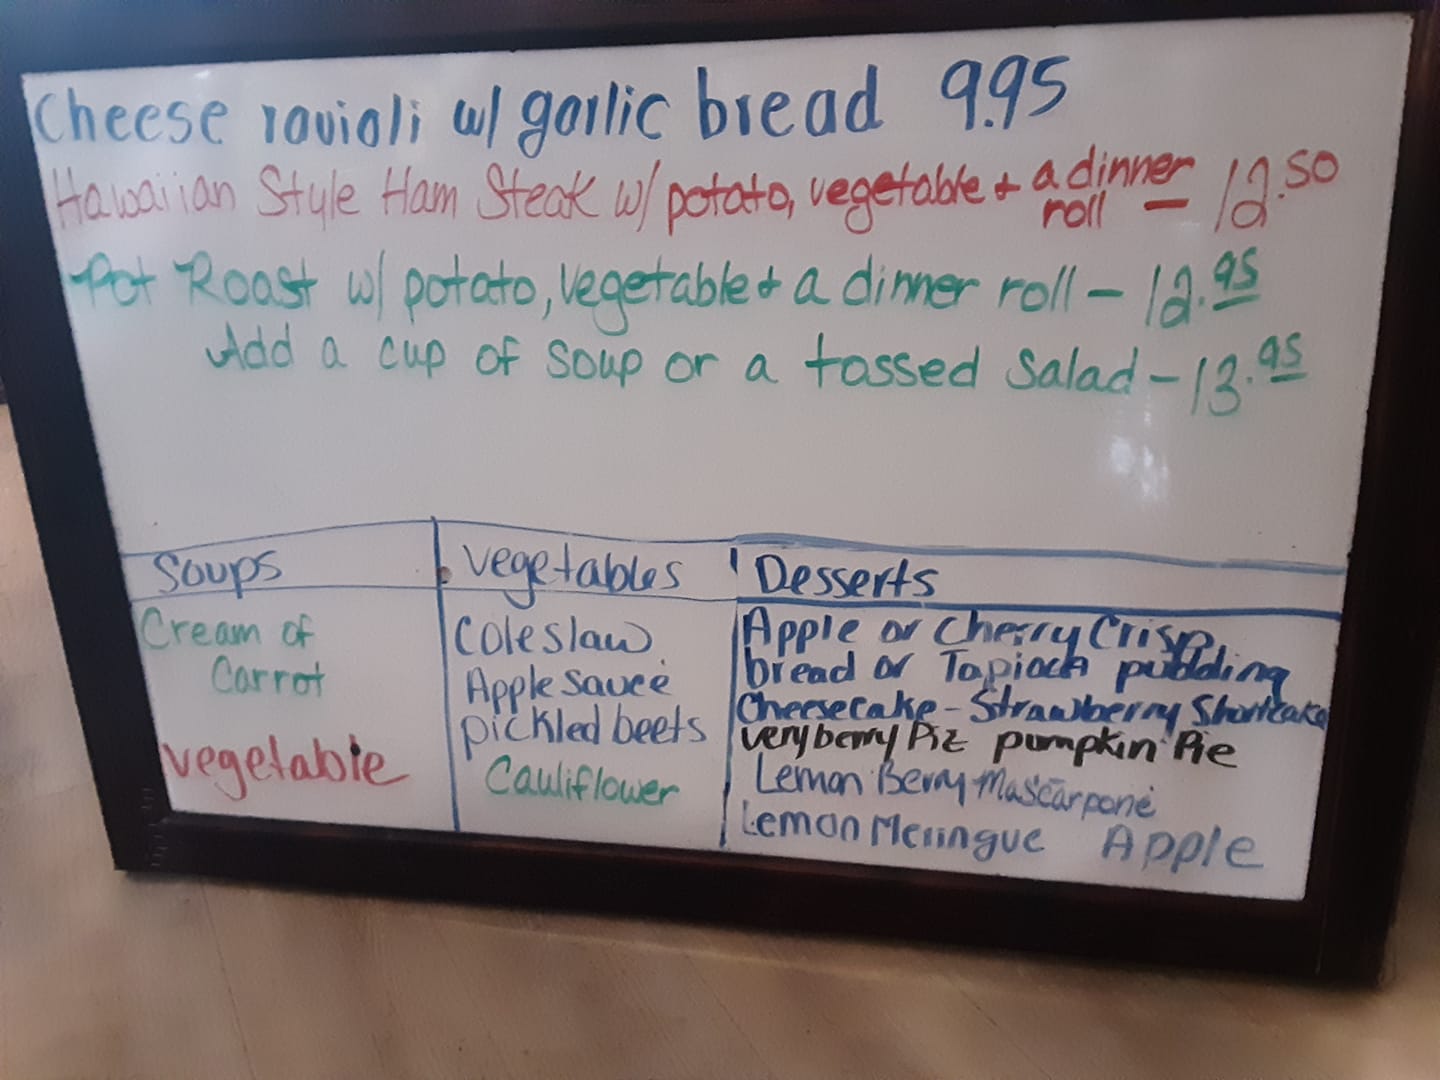 Cheese ravioli w/ garlic bread 9.95
Hawaiian Style Ham Steak w/ potato, vegetable + a dinner roll — 12.50
Pot Roast w/ potato, vegetable + a dinner roll – 12.95
Add a cup of soup or a tossed salad – 13.95
Soups
Cream of
Carrot
vegetable
Vegetables
Coleslaw
Applesauce
pickled beets
Cauliflower
Desserts
Apple or Cherry Crisp
bread or Tapioca pudding
Cheesecake - Strawberry Shortcake
very berry Pie pumpkin Pie
Lemon Berry Mascarpone
Lemon Meringue Apple